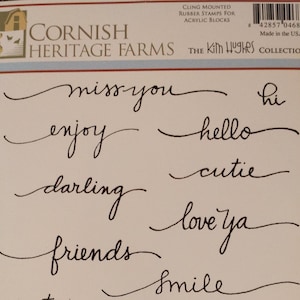 CORNISH
HERITAGE FARMS
CLING MOUNTED
RUBBER STAMPS FOR
ACRYLIC BLOCKS
THE Kim Hughes COLLECTIO
Made in the US
miss you
hi
enjoy
hello
cutie
darling
love ya
friends
smile